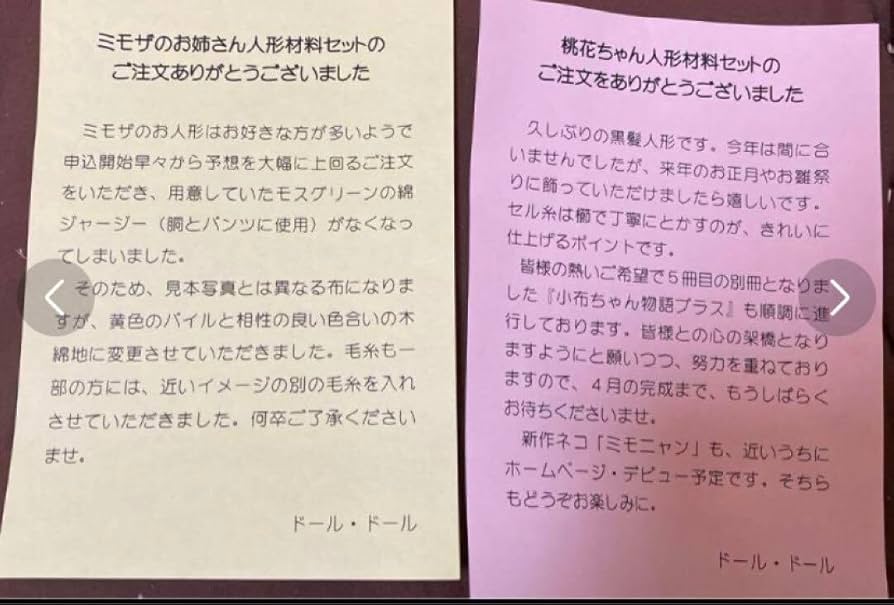 ミモザのお姉さん人形材料セットの
ご注文ありがとうございました
ミモザのお人形はお好きな方が多いようで
申込開始早々から予想を大幅に上回るご注文
をいただき、用意していたモスグリーンの綿
ジャージー（胴とパンツに使用）がなくなっ
てしまいました。
そのため、見本写真とは異なる布になりま
すが、黄色のパイルと相性の良い色合いの木
綿地に変更させていただきました。毛糸も一
部の方には、近いイメージの別の毛糸を入れ
させていただきました。何卒ご了承ください
ませ。
ドール・ドール
桃花ちゃん人形材料セットの
ご注文をありがとうございました
久しぶりの黒髪人形です。今年は間に合
いませんでしたが、来年のお正月やお雛祭
りに飾っていただけましたら嬉しいです。
セル糸は櫛で丁寧にとかすのが、きれいに
仕上げるポイントです。
皆様の熱いご希望で５冊目の別冊となりま
した『小布ちゃん物語プラス』も順調に進
行しております。皆様との心の架橋となり
ますようにと願いつつ、努力を重ねており
ますので、４月の完成まで、もうしばらく
お待ちくださいませ。
新作ネコ「ミモニャン」も、近いうちに
ホームページ・デビュー予定です。そちら
もどうぞお楽しみに。
ドール・ドール